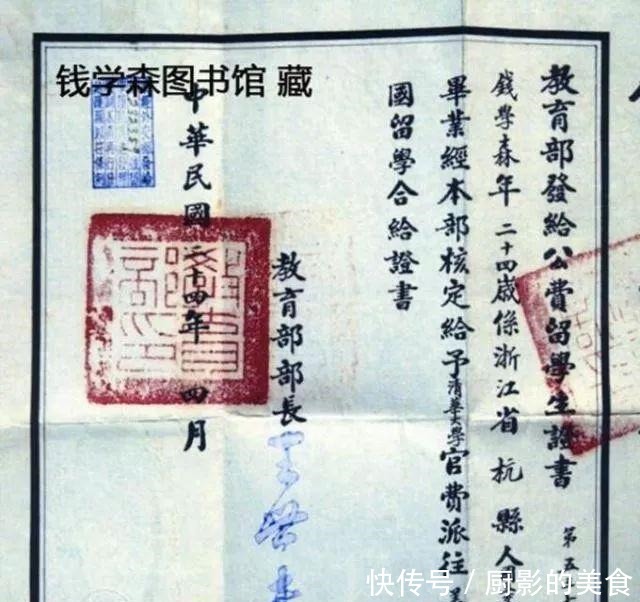 钱学森图书馆 藏
教育部發給公費留學生證書
第五
錢學森年二十四歲係浙江省杭縣人
畢業經本部核定給予清華大學官費派往
國留學合給證書
教育部部長王世
中華民國二十四年四月
快传号／厨影的美食